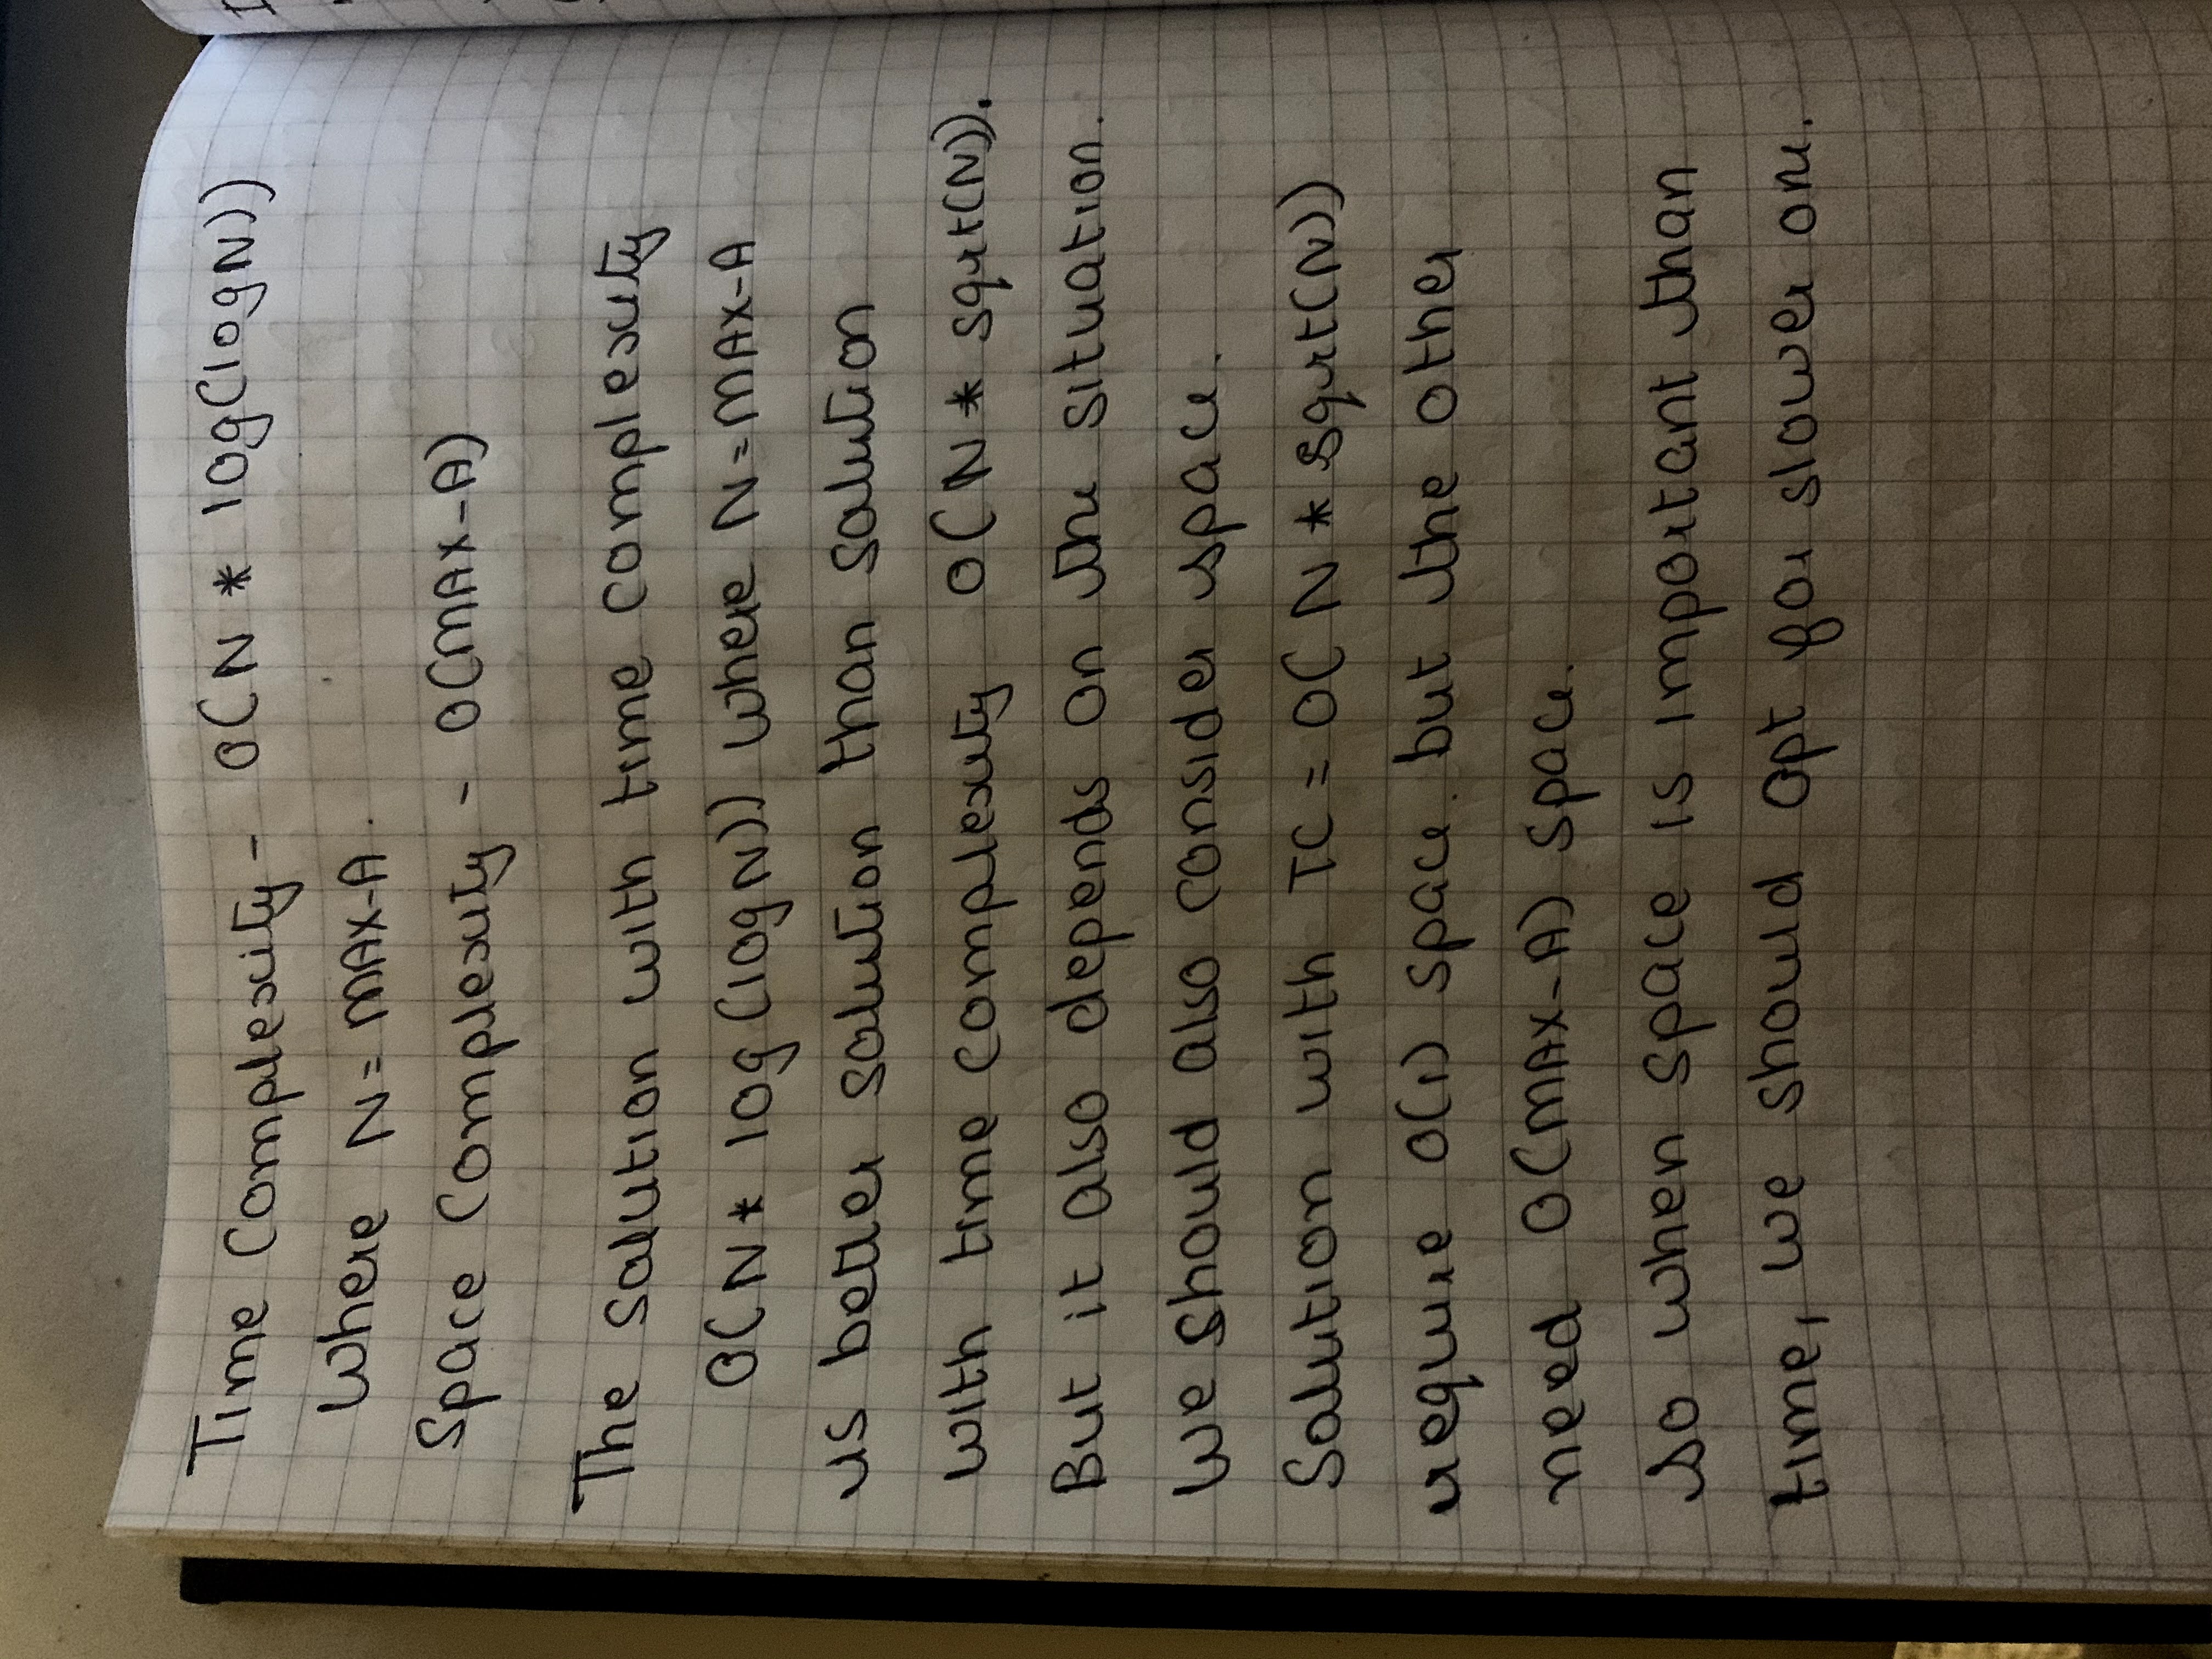 Time Complexity - O(N * log(logN))
Where N = MAX-A.
Space Complexity - O(MAX-A)
The solution with time complexity
O(N * log(logN)) where N = MAX-A
is better solution than solution
with time complexity O(N * sqrt(N)).
But it also depends on the situation.
We should also consider space.
Solution with TC = O(N * sqrt(N))
require O(1) space but the other
need O(MAX-A) space.
So when space is important than
time, we should opt for slower one.